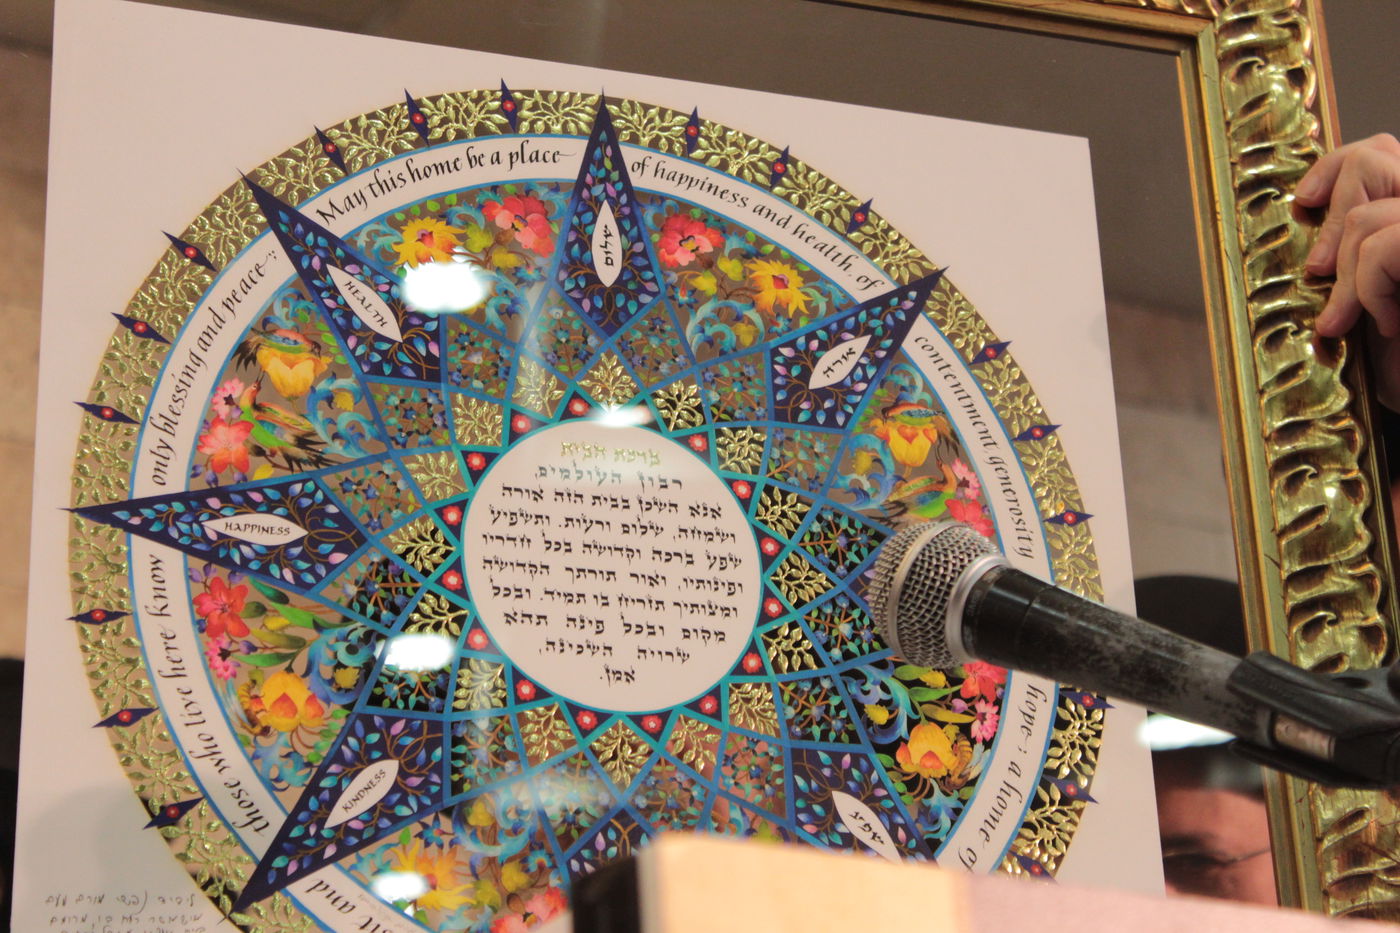 May this home be a place
of happiness and health, of
contentment, generosity
hope; a home of
those who live here know
only blessing and peace
שלום
אורה
HEALTH
HAPPINESS
KINDNESS
ברכת הבית
רבון העולמים,
אנא השכן בבית הזה אורה
ושמחה, שלום ורעות. ותשפיע
שפע ברכה וקדושה בכל חדריו
ופינותיו, ואור תורתך הקדושה
ומצותיך תזריח בו תמיד. ובכל
מקום ובכל פינה תהא
שרויה השכינה,
אמן.